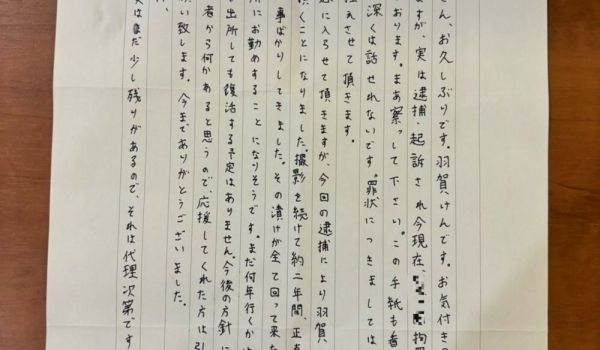 さん、お久しぶりです。羽賀けんです。お気付きの
ますが、実は逮捕・起訴され今現在、拘
おります。まあ察して下さい。この手紙も
深くは話せれないです。罪状につきましては
えさせて頂きます。
に入らせて頂きますが、今回の逮捕により羽賀
くことになりました。撮影を続けて約二年間、正直
事ばかりしてきました。その漬けが全て回って来た
所にお勤めすることになりそうです。まだ何年行くかは
出所しても復活する予定はありません。今後の方針に
者から何かあると思うので、応援してくれた方は引
い致します。今までありがとうございました。
実はまだ少し残りがあるので、それは代理次第です